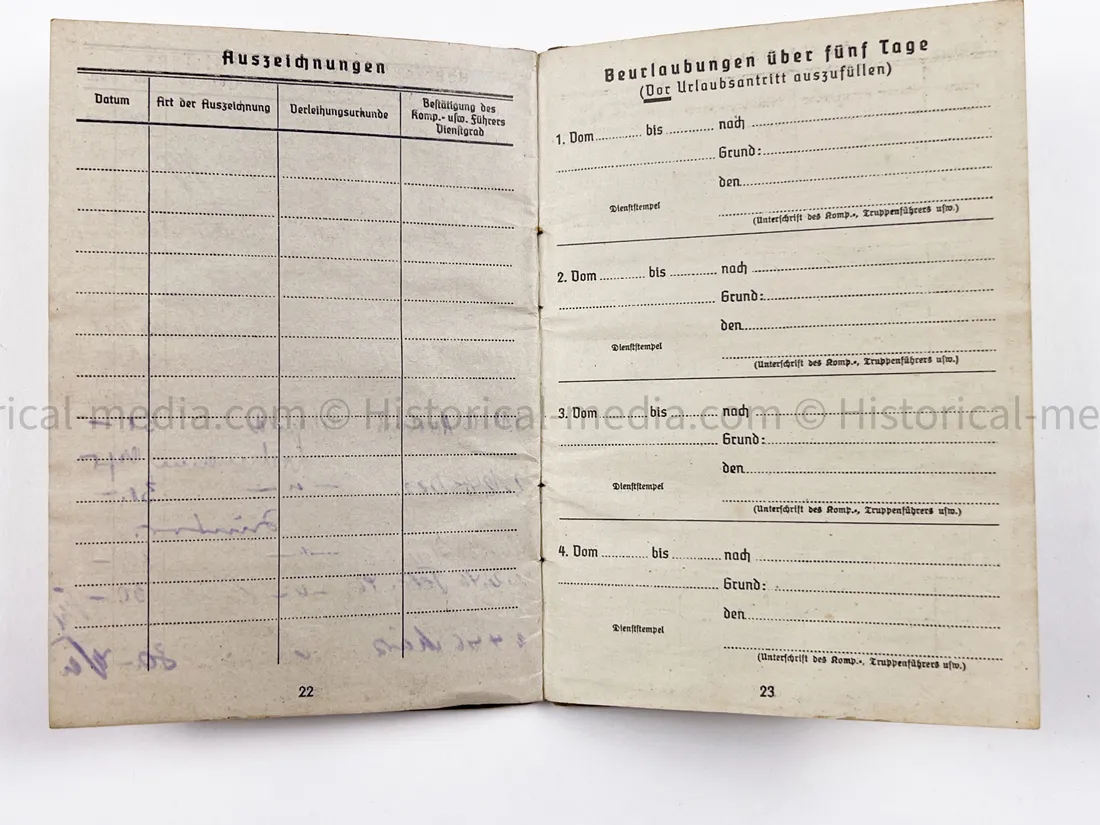 Auszeichnungen
Datum
Art der Auszeichnung
Verleihungsurkunde
Bestätigung des
Komp.- usw. Führers
Dienstgrad
22
Beurlaubungen über fünf Tage
(Vor Urlaubsantritt auszufüllen)
1. Vom bis nach
Grund:
den
Dienststempel
(Unterschrift des Komp.-, Truppenführers usw.)
2. Vom bis nach
Grund:
den
Dienststempel
(Unterschrift des Komp.-, Truppenführers usw.)
3. Vom bis nach
Grund:
den
Dienststempel
(Unterschrift des Komp.-, Truppenführers usw.)
4. Vom bis nach
Grund:
den
Dienststempel
(Unterschrift des Komp.-, Truppenführers usw.)
23
orical-media.com © Historical-media.com © Historical-me